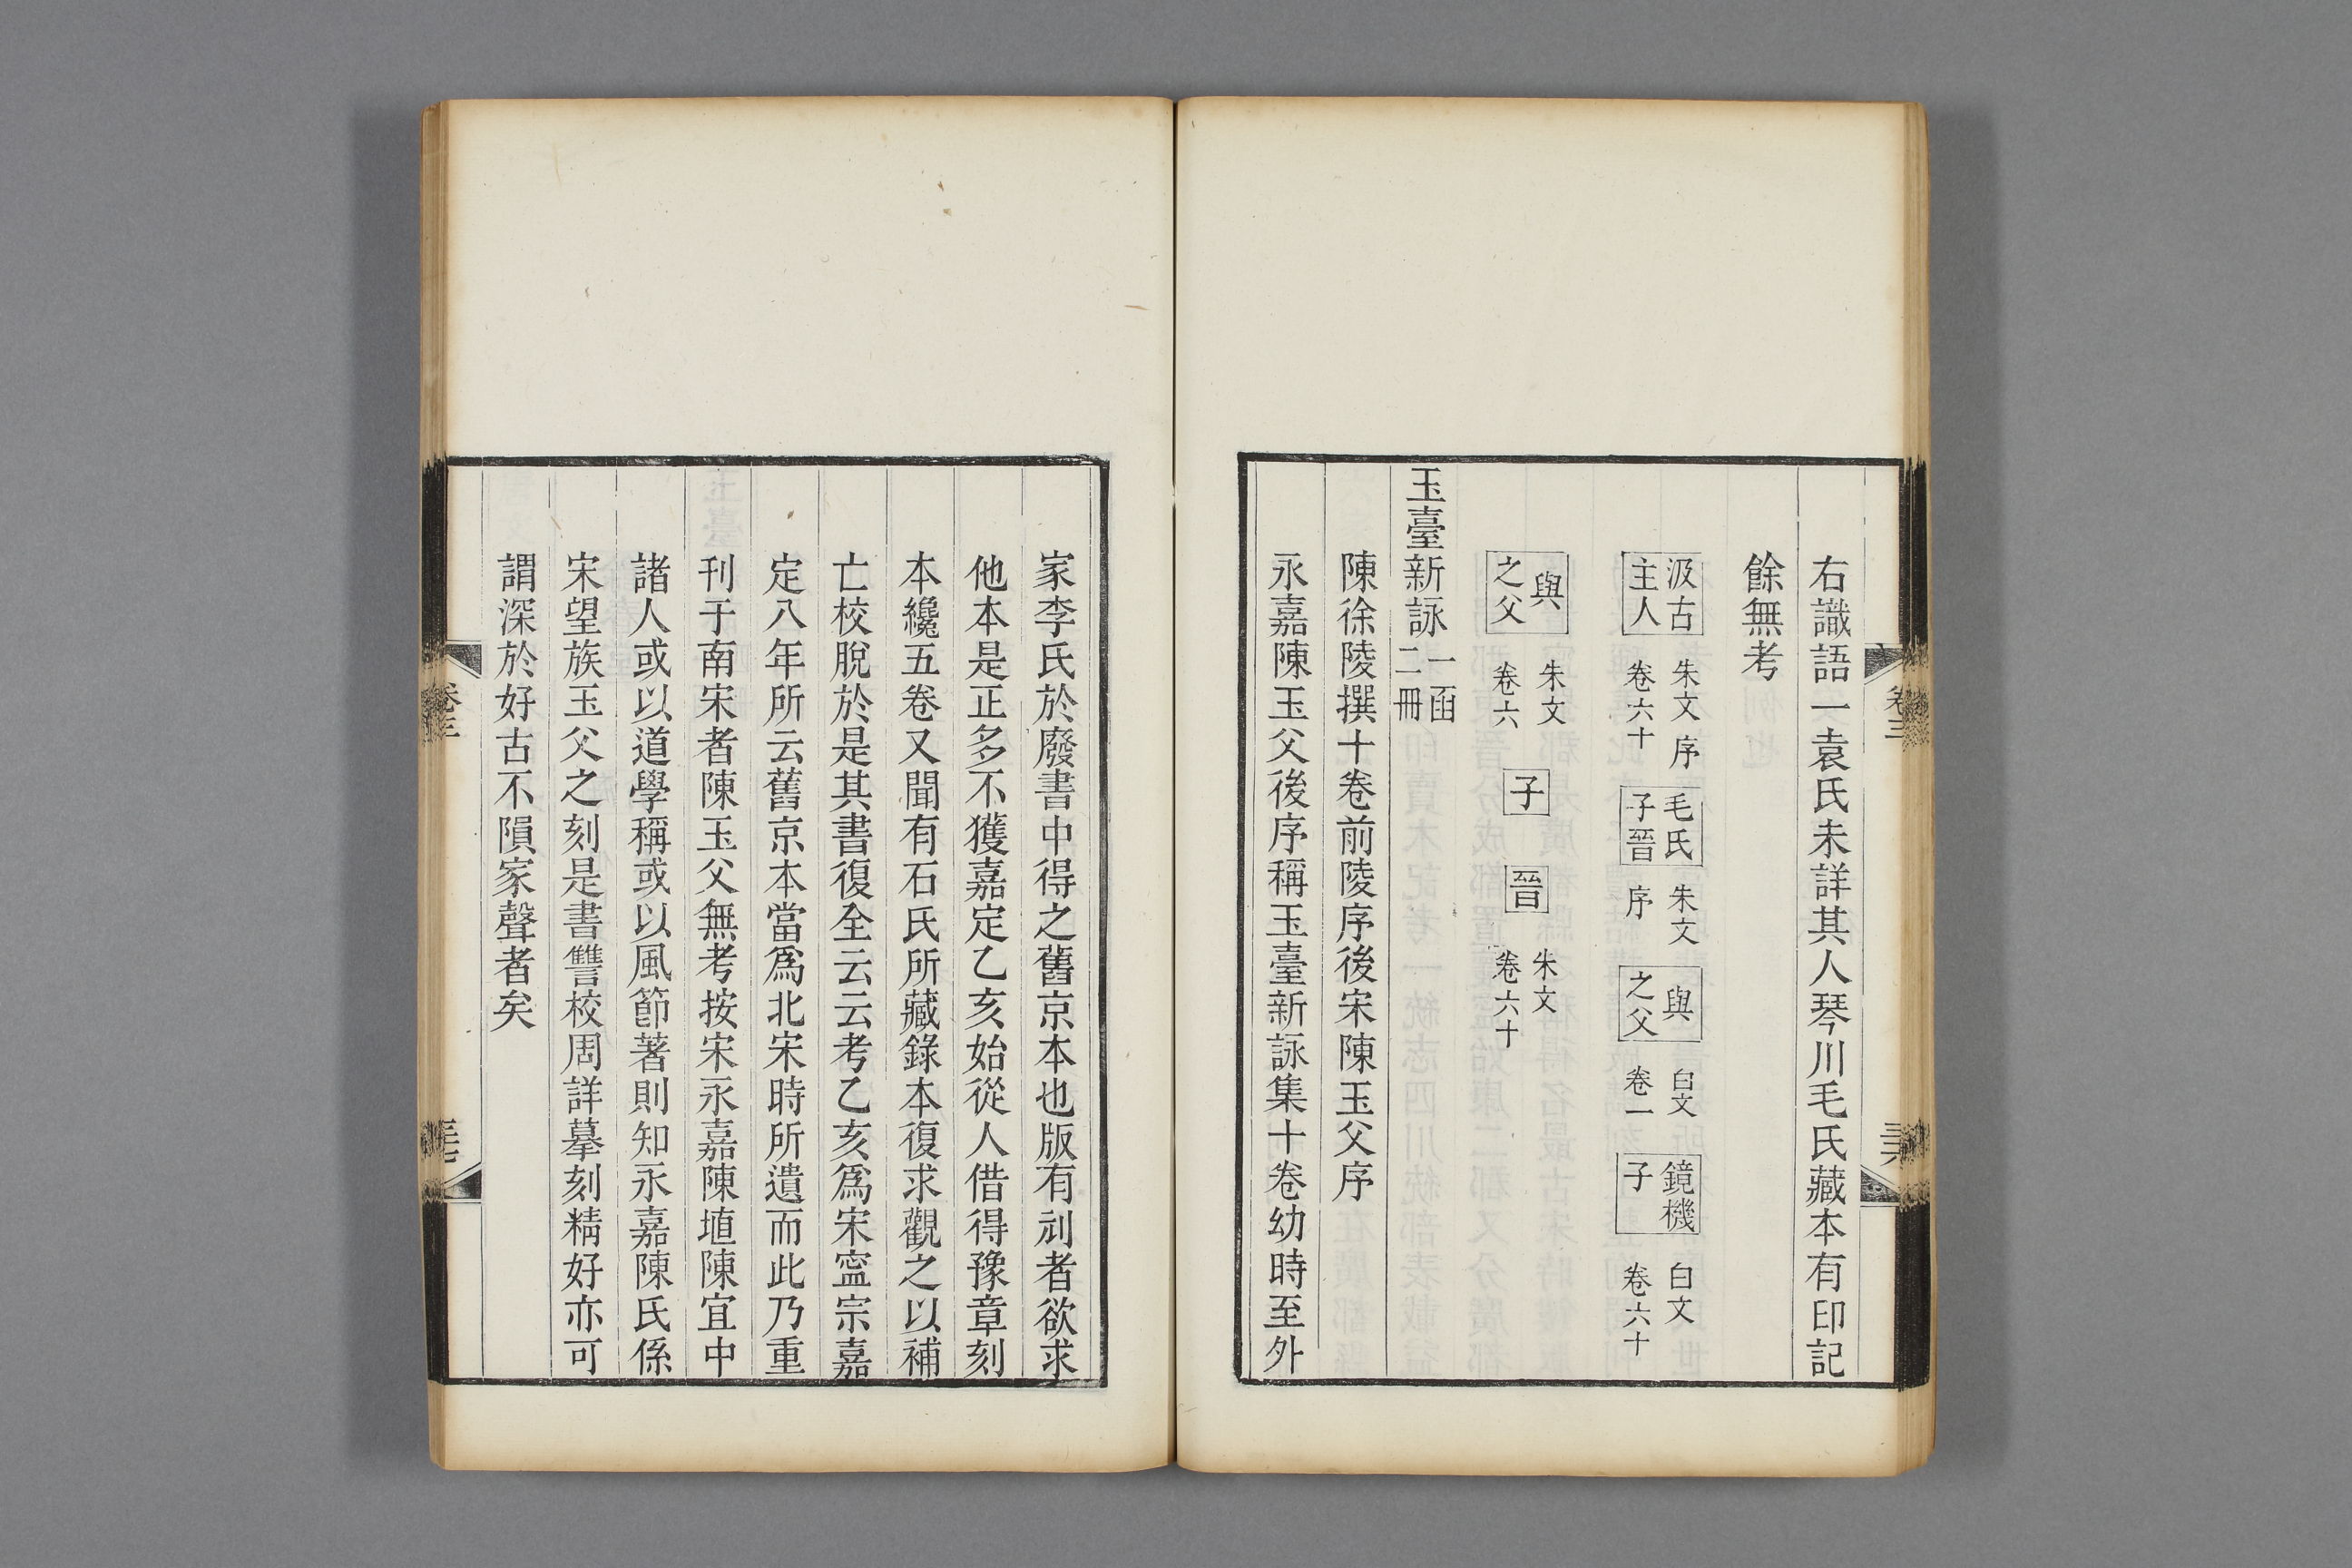 右識語一袁氏未詳其人琴川毛氏藏本有印記
餘無考
汲古主人 朱文 序 卷六十 毛氏子晉 朱文 序 與之父 白文 卷一 鏡機子 白文 卷六十
與之父 朱文 卷六 子 晉 朱文 卷六十
玉臺新詠 一函 二冊
陳徐陵撰十卷前陵序後宋陳玉父序
永嘉陳玉父後序稱玉臺新詠集十卷幼時至外
卷三
三十六
家李氏於廢書中得之舊京本也版有刓者欲求
他本是正多不獲嘉定乙亥始從人借得豫章刻
本纔五卷又聞有石氏所藏錄本復求觀之以補
亡校脫於是其書復全云云考乙亥爲宋寍宗嘉
定八年所云舊京本當爲北宋時所遺而此乃重
刊于南宋者陳玉父無考按宋永嘉陳埴陳宜中
諸人或以道學稱或以風節著則知永嘉陳氏係
宋望族玉父之刻是書讐校周詳摹刻精好亦可
謂深於好古不隕家聲者矣
卷三
三十七